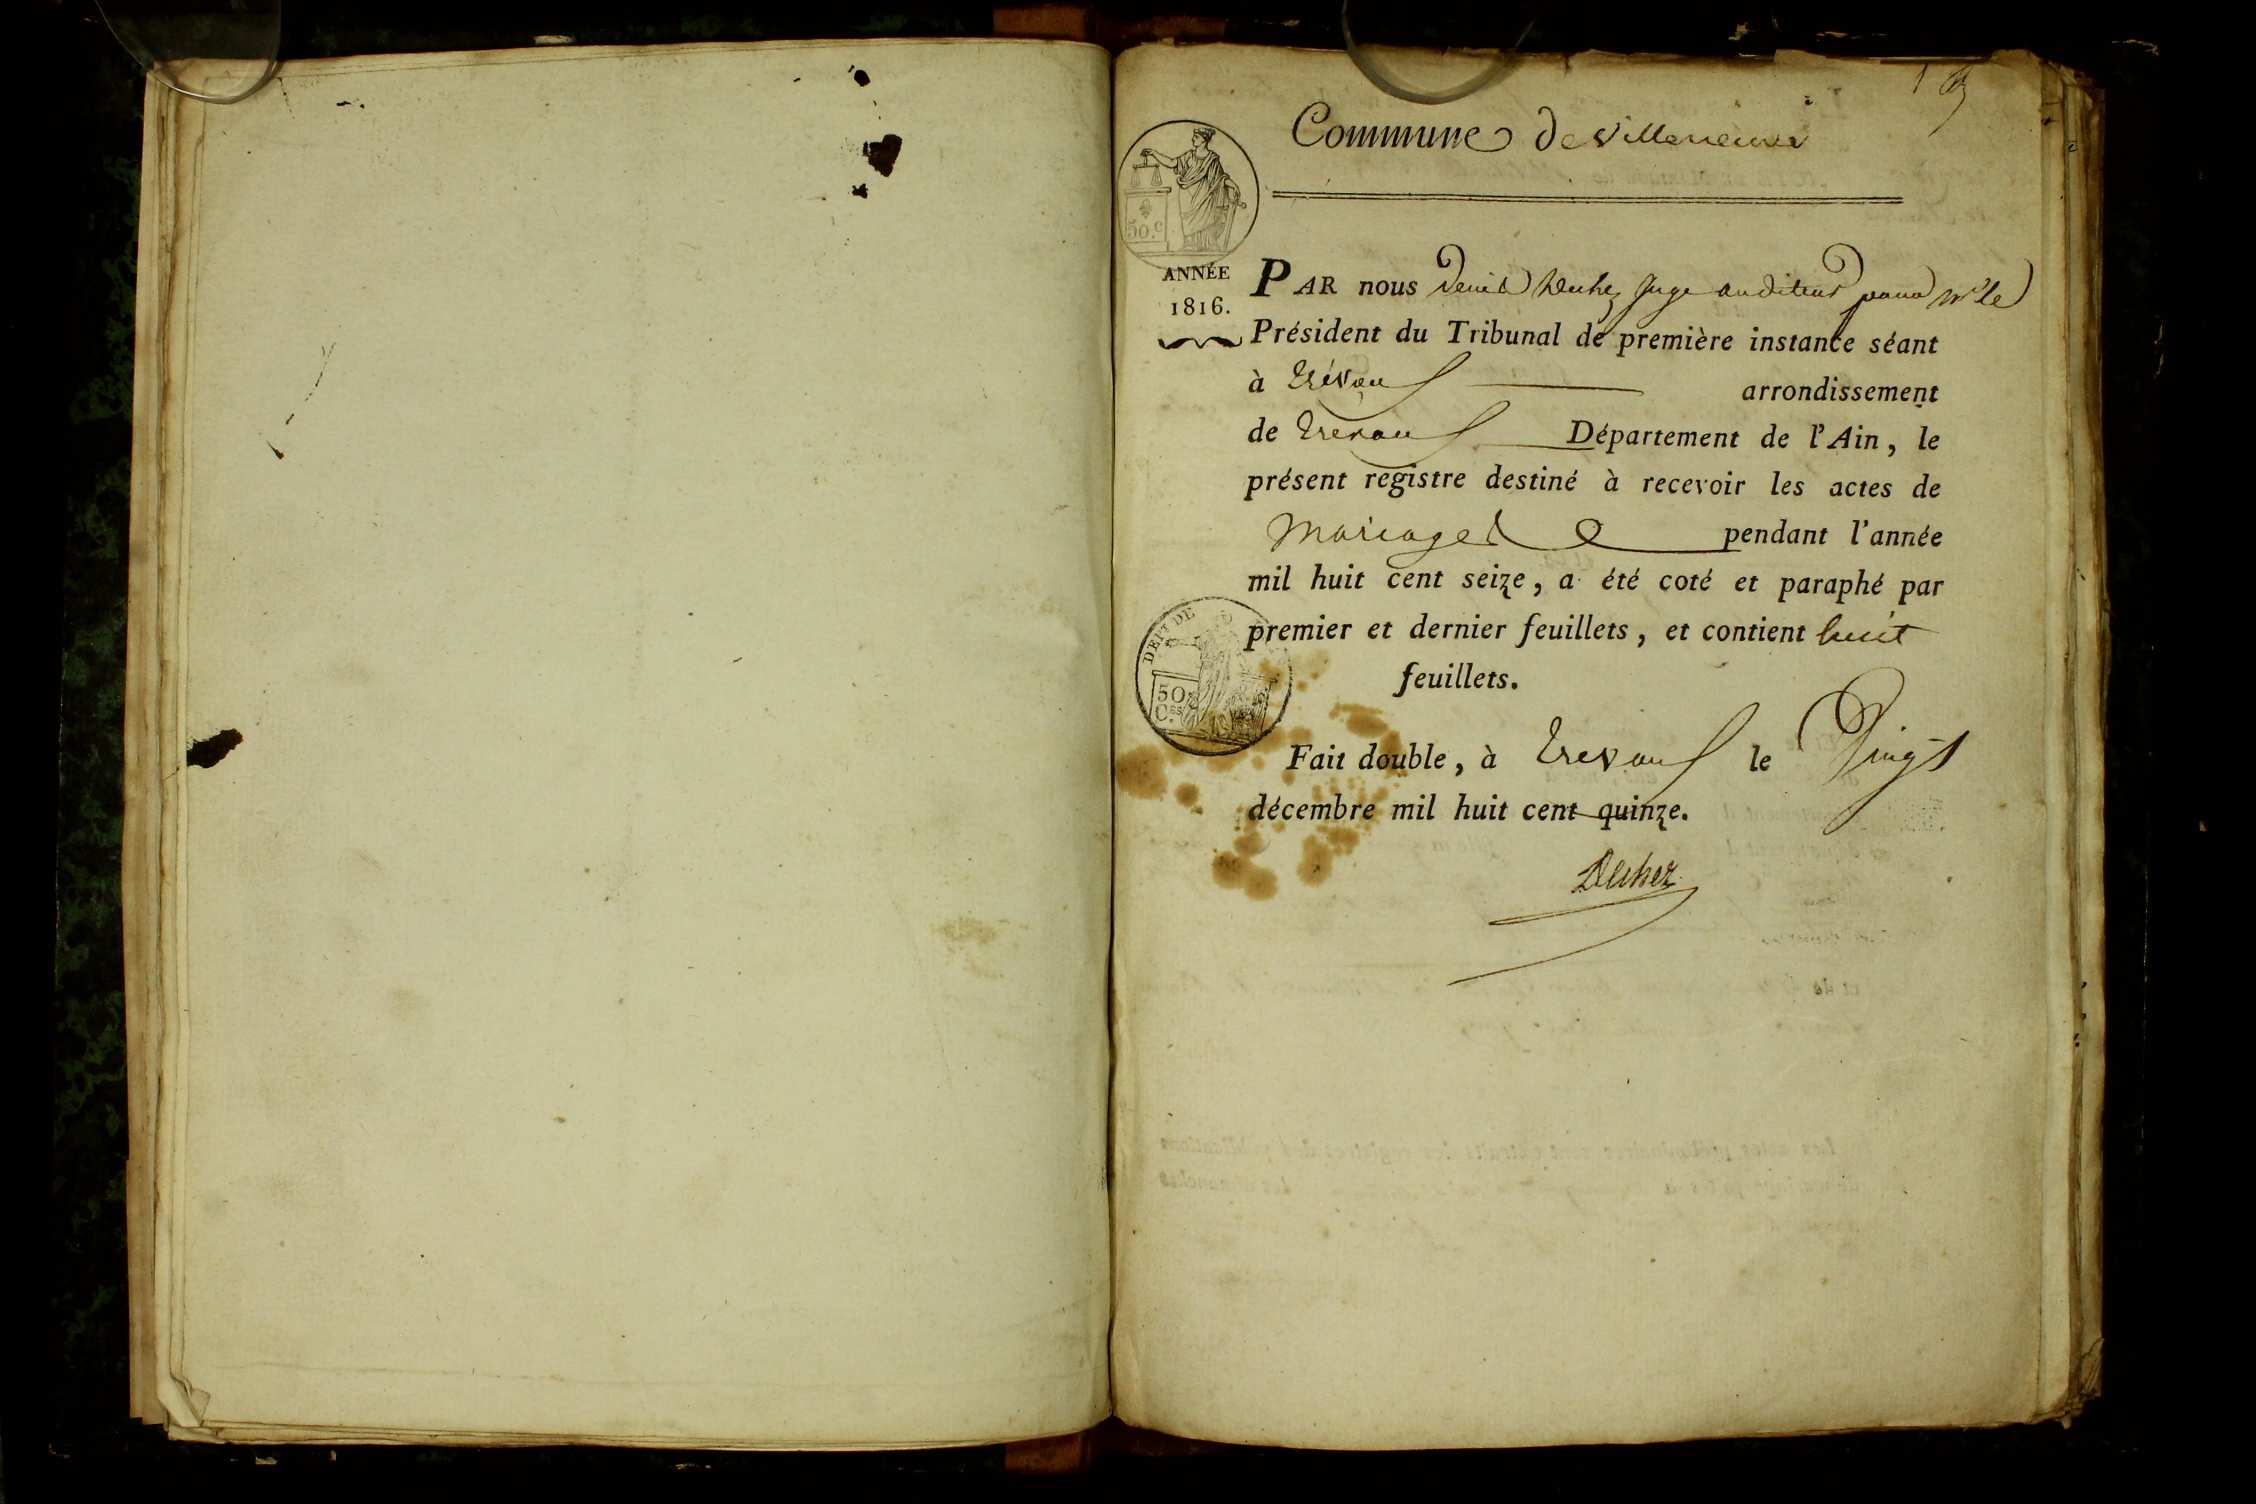 1
Commune de Villeneuve
50.c
ANNÉE
1816.
PAR nous Denis Duhez Juge auditeur pour Mr le
Président du Tribunal de première instance séant
à Trévoux arrondissement
de Trevoux Département de l'Ain, le
présent registre destiné à recevoir les actes de
Mariages pendant l'année
mil huit cent seize, a été coté et paraphé par
premier et dernier feuillets, et contient huit
feuillets.
DEPT DE
50
CES
Fait double, à Trevoux le Vingt
décembre mil huit cent quinze.